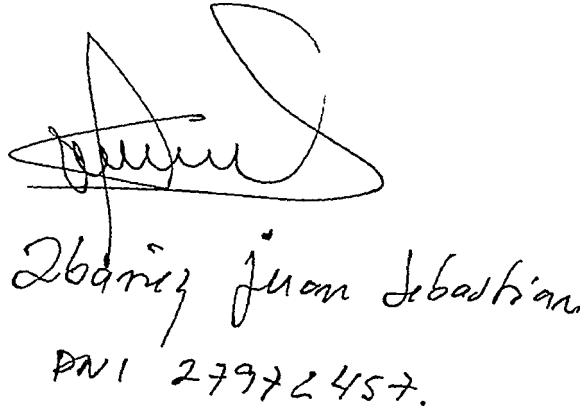 Ibáñez Juan Sebastian
DNI 27972457.